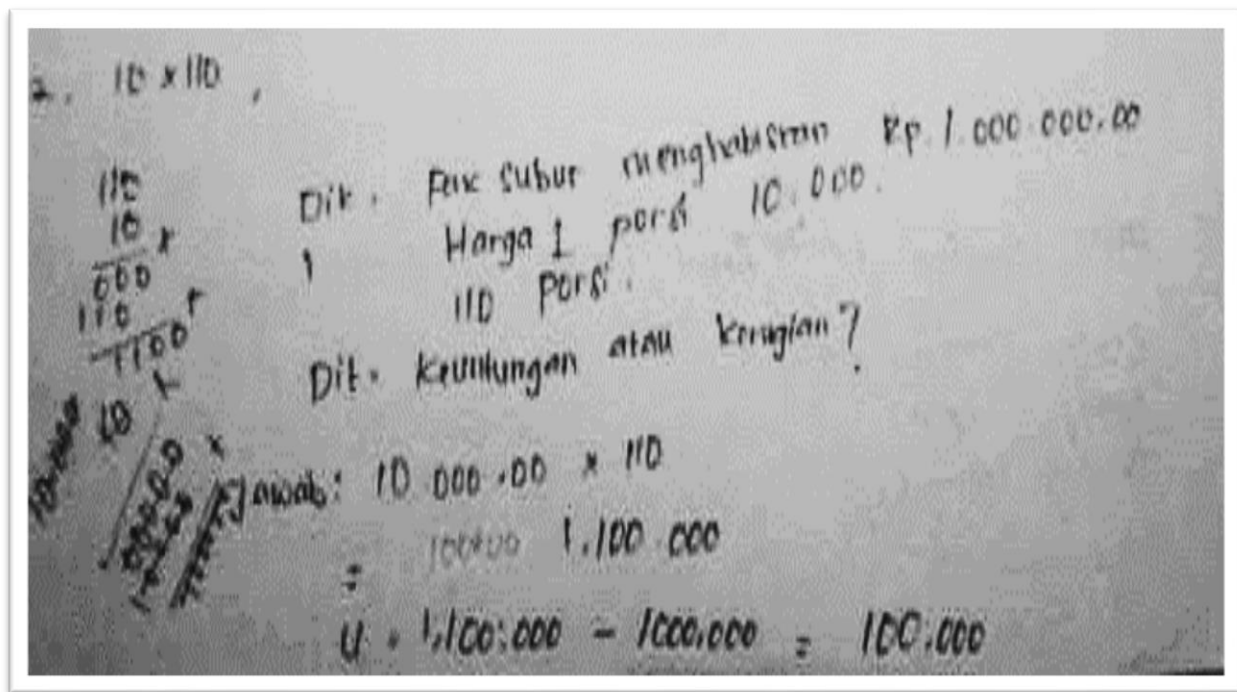 2. 10 x 110,
110
10 x
000
110 +
1100
Dik. Pak Subur menghabiskan Rp. 1.000.000.00
Harga 1 porsi 10.000.
110 porsi.
Dit. Keuntungan atau kerugian?
10
Jawab: 10 000.00 x 110
= 1.100.000
U = 1.100.000 - 1000.000 = 100.000